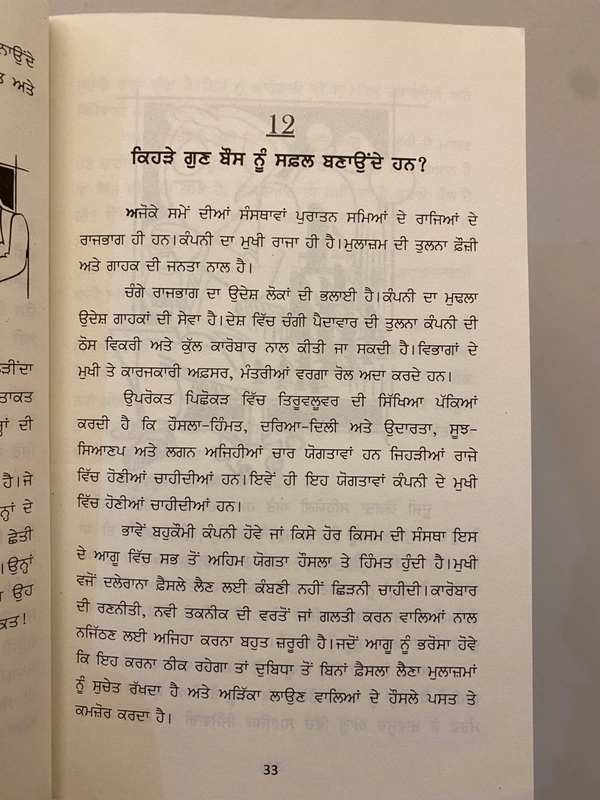 ਨਾਉਂਦੇ
ਅਤੇ
ੜੀਂਦਾ
ਤਾਕਤ
ਹੈ।ਜੇ
ਨ੍ਹਾਂ ਦੇ
ਛੇਤੀ
ਉਨ੍ਹਾਂ
ਉਹ
12
ਕਿਹੜੇ ਗੁਣ ਬੌਸ ਨੂੰ ਸਫ਼ਲ ਬਣਾਉਂਦੇ ਹਨ?
ਅਜੋਕੇ ਸਮੇਂ ਦੀਆਂ ਸੰਸਥਾਵਾਂ ਪੁਰਾਤਨ ਸਮਿਆਂ ਦੇ ਰਾਜਿਆਂ ਦੇ
ਰਾਜਭਾਗ ਹੀ ਹਨ।ਕੰਪਨੀ ਦਾ ਮੁਖੀ ਰਾਜਾ ਹੀ ਹੈ।ਮੁਲਾਜ਼ਮ ਦੀ ਤੁਲਨਾ ਫ਼ੌਜੀ
ਅਤੇ ਗਾਹਕ ਦੀ ਜਨਤਾ ਨਾਲ ਹੈ।
ਚੰਗੇ ਰਾਜਭਾਗ ਦਾ ਉਦੇਸ਼ ਲੋਕਾਂ ਦੀ ਭਲਾਈ ਹੈ।ਕੰਪਨੀ ਦਾ ਮੁਢਲਾ
ਉਦੇਸ਼ ਗਾਹਕਾਂ ਦੀ ਸੇਵਾ ਹੈ।ਦੇਸ਼ ਵਿੱਚ ਚੰਗੀ ਪੈਦਾਵਾਰ ਦੀ ਤੁਲਨਾ ਕੰਪਨੀ ਦੀ
ਠੋਸ ਵਿਕਰੀ ਅਤੇ ਕੁੱਲ ਕਾਰੋਬਾਰ ਨਾਲ ਕੀਤੀ ਜਾ ਸਕਦੀ ਹੈ।ਵਿਭਾਗਾਂ ਦੇ
ਮੁਖੀ ਤੇ ਕਾਰਜਕਾਰੀ ਅਫ਼ਸਰ, ਮੰਤਰੀਆਂ ਵਰਗਾ ਰੋਲ ਅਦਾ ਕਰਦੇ ਹਨ।
ਉਪਰੋਕਤ ਪਿਛੋਕੜ ਵਿੱਚ ਤਿਰੂਵਲੂਵਰ ਦੀ ਸਿੱਖਿਆ ਪੱਕਿਆਂ
ਕਰਦੀ ਹੈ ਕਿ ਹੌਸਲਾ-ਹਿੰਮਤ, ਦਰਿਆ-ਦਿਲੀ ਅਤੇ ਉਦਾਰਤਾ, ਸੂਝ-
ਸਿਆਣਪ ਅਤੇ ਲਗਨ ਅਜਿਹੀਆਂ ਚਾਰ ਯੋਗਤਾਵਾਂ ਹਨ ਜਿਹੜੀਆਂ ਰਾਜੇ
ਵਿੱਚ ਹੋਣੀਆਂ ਚਾਹੀਦੀਆਂ ਹਨ।ਇਵੇਂ ਹੀ ਇਹ ਯੋਗਤਾਵਾਂ ਕੰਪਨੀ ਦੇ ਮੁਖੀ
ਵਿੱਚ ਹੋਣੀਆਂ ਚਾਹੀਦੀਆਂ ਹਨ।
ਭਾਵੇਂ ਬਹੁਕੌਮੀ ਕੰਪਨੀ ਹੋਵੇ ਜਾਂ ਕਿਸੇ ਹੋਰ ਕਿਸਮ ਦੀ ਸੰਸਥਾ ਇਸ
ਦੇ ਆਗੂ ਵਿੱਚ ਸਭ ਤੋਂ ਅਹਿਮ ਯੋਗਤਾ ਹੌਸਲਾ ਤੇ ਹਿੰਮਤ ਹੁੰਦੀ ਹੈ।ਮੁਖੀ
ਵਜੋਂ ਦਲੇਰਾਨਾ ਫ਼ੈਸਲੇ ਲੈਣ ਲਈ ਕੰਬਣੀ ਨਹੀਂ ਛਿੜਨੀ ਚਾਹੀਦੀ।ਕਾਰੋਬਾਰ
ਦੀ ਰਣਨੀਤੀ, ਨਵੀ ਤਕਨੀਕ ਦੀ ਵਰਤੋਂ ਜਾਂ ਗਲਤੀ ਕਰਨ ਵਾਲਿਆਂ ਨਾਲ
ਨਜਿੱਠਣ ਲਈ ਅਜਿਹਾ ਕਰਨਾ ਬਹੁਤ ਜ਼ਰੂਰੀ ਹੈ।ਜਦੋਂ ਆਗੂ ਨੂੰ ਭਰੋਸਾ ਹੋਵੇ
ਕਿ ਇਹ ਕਰਨਾ ਠੀਕ ਰਹੇਗਾ ਤਾਂ ਦੁਬਿਧਾ ਤੋਂ ਬਿਨਾਂ ਫ਼ੈਸਲਾ ਲੈਣਾ ਮੁਲਾਜ਼ਮਾਂ
ਨੂੰ ਸੁਚੇਤ ਰੱਖਦਾ ਹੈ ਅਤੇ ਅੜਿੱਕਾ ਲਾਉਣ ਵਾਲਿਆਂ ਦੇ ਹੌਸਲੇ ਪਸਤ ਤੇ
ਕਮਜ਼ੋਰ ਕਰਦਾ ਹੈ।
33